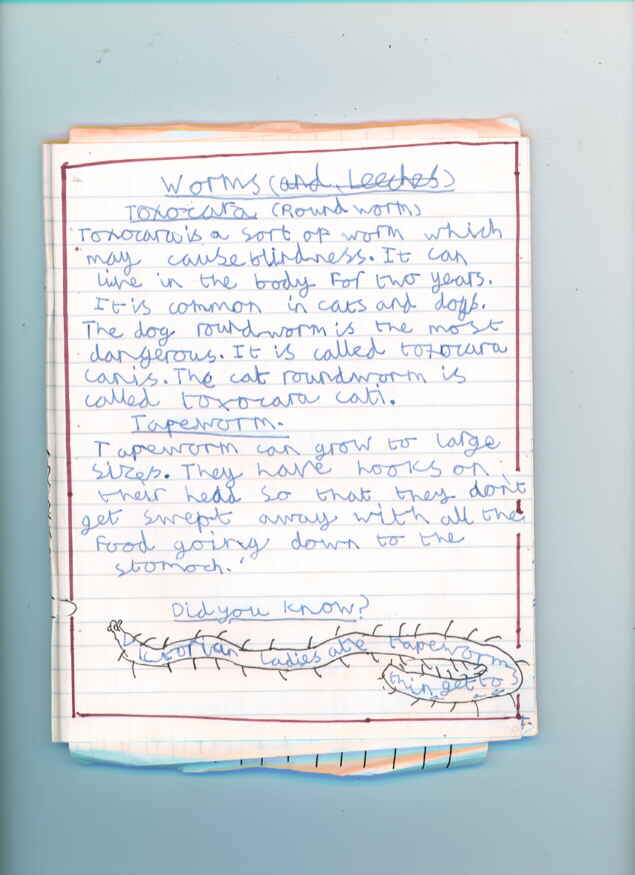 Worms (and Leeches)
Toxocara (Roundworm)
Toxocara is a sort of worm which
may cause blindness. It can
live in the body for two years.
It is common in cats and dogs.
The dog roundworm is the most
dangerous. It is called toxocara
canis. The cat roundworm is
called toxocara cati.
Tapeworm.
Tapeworm can grow to large
sizes. They have hooks on
their head so that they don't
get swept away with all the
food going down to the
stomach.
Did you know?
Victorian ladies ate tapeworms
to get thin